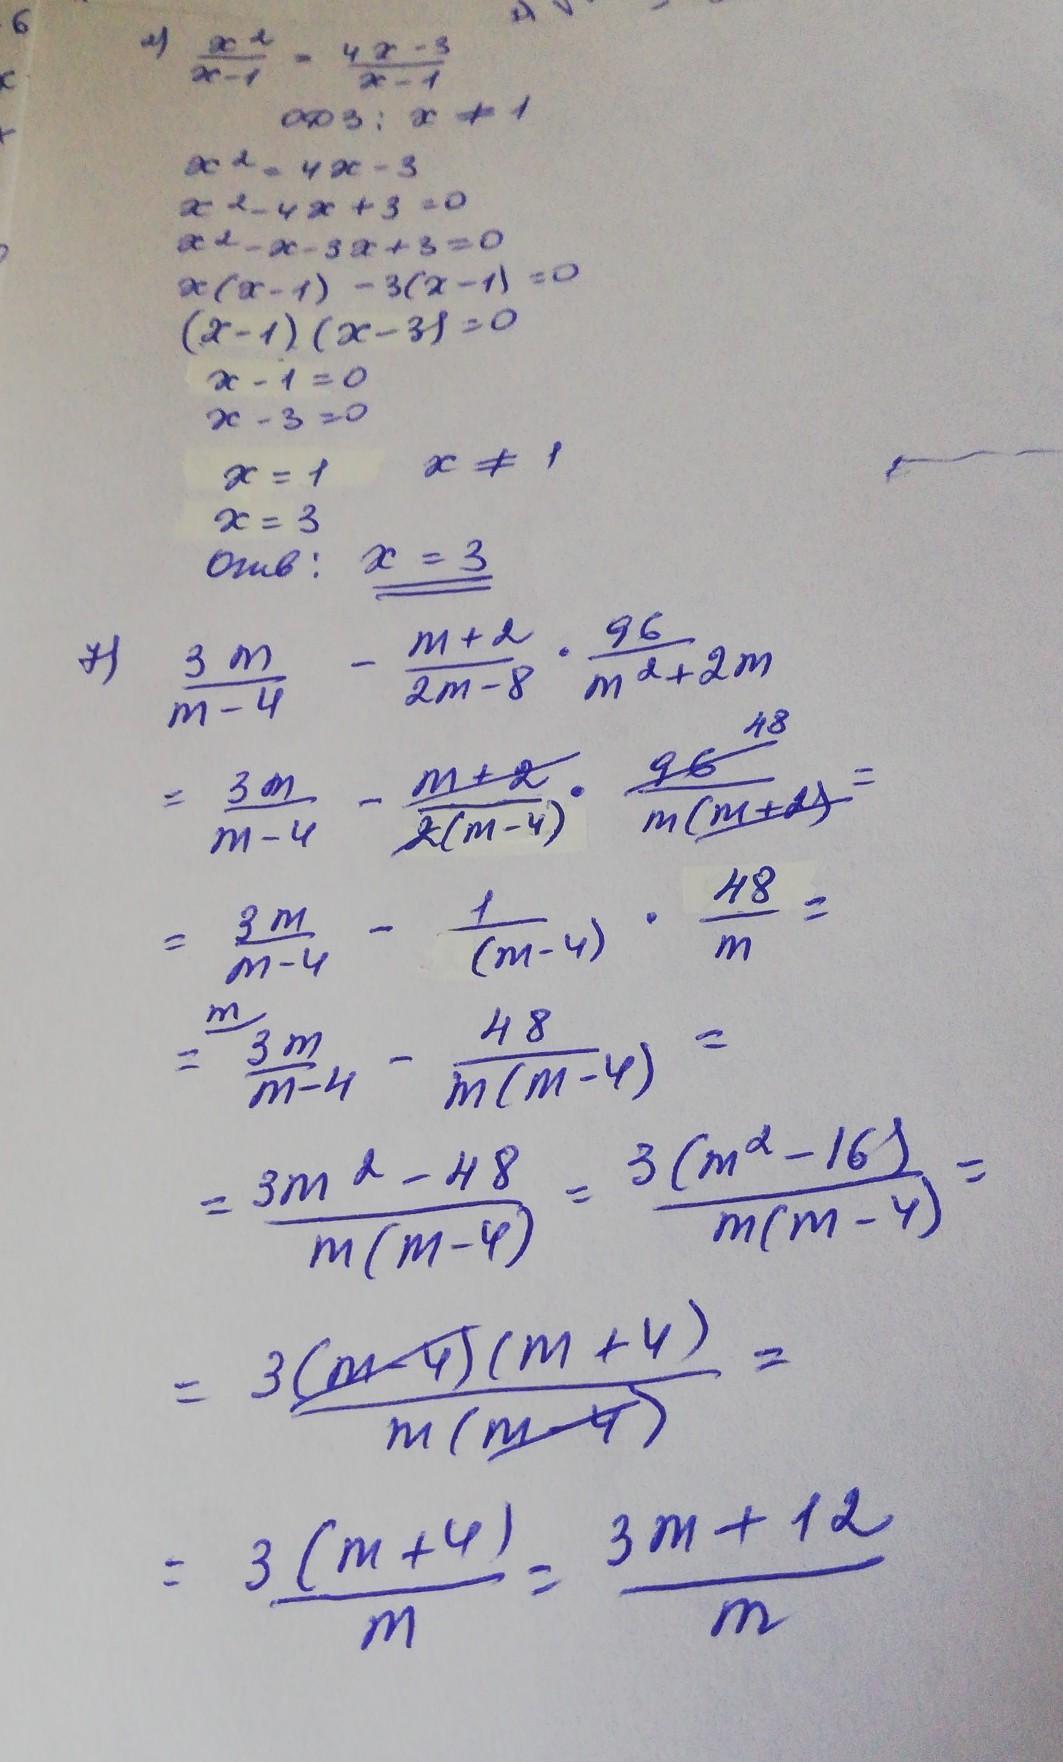 2) x²/(x-1) = (4x-3)/(x-1)
ОДЗ: x ≠ 1
x² = 4x - 3
x² - 4x + 3 = 0
x² - x - 3x + 3 = 0
x(x-1) - 3(x-1) = 0
(x-1)(x-3) = 0
x - 1 = 0
x - 3 = 0
x = 1 x ≠ 1
x = 3
Отв: x = 3
7) 3m/(m-4) - (m+2)/(2m-8) · 96/(m²+2m)
= 3m/(m-4) - (m+2)/(2(m-4)) · 96/(m(m+2)) = 48
= 3m/(m-4) - 1/(m-4) · 48/m =
= m 3m/(m-4) - 48/(m(m-4)) =
= (3m²-48)/(m(m-4)) = 3(m²-16)/(m(m-4)) =
= 3(m-4)(m+4)/(m(m-4)) =
= 3(m+4)/m = (3m+12)/m